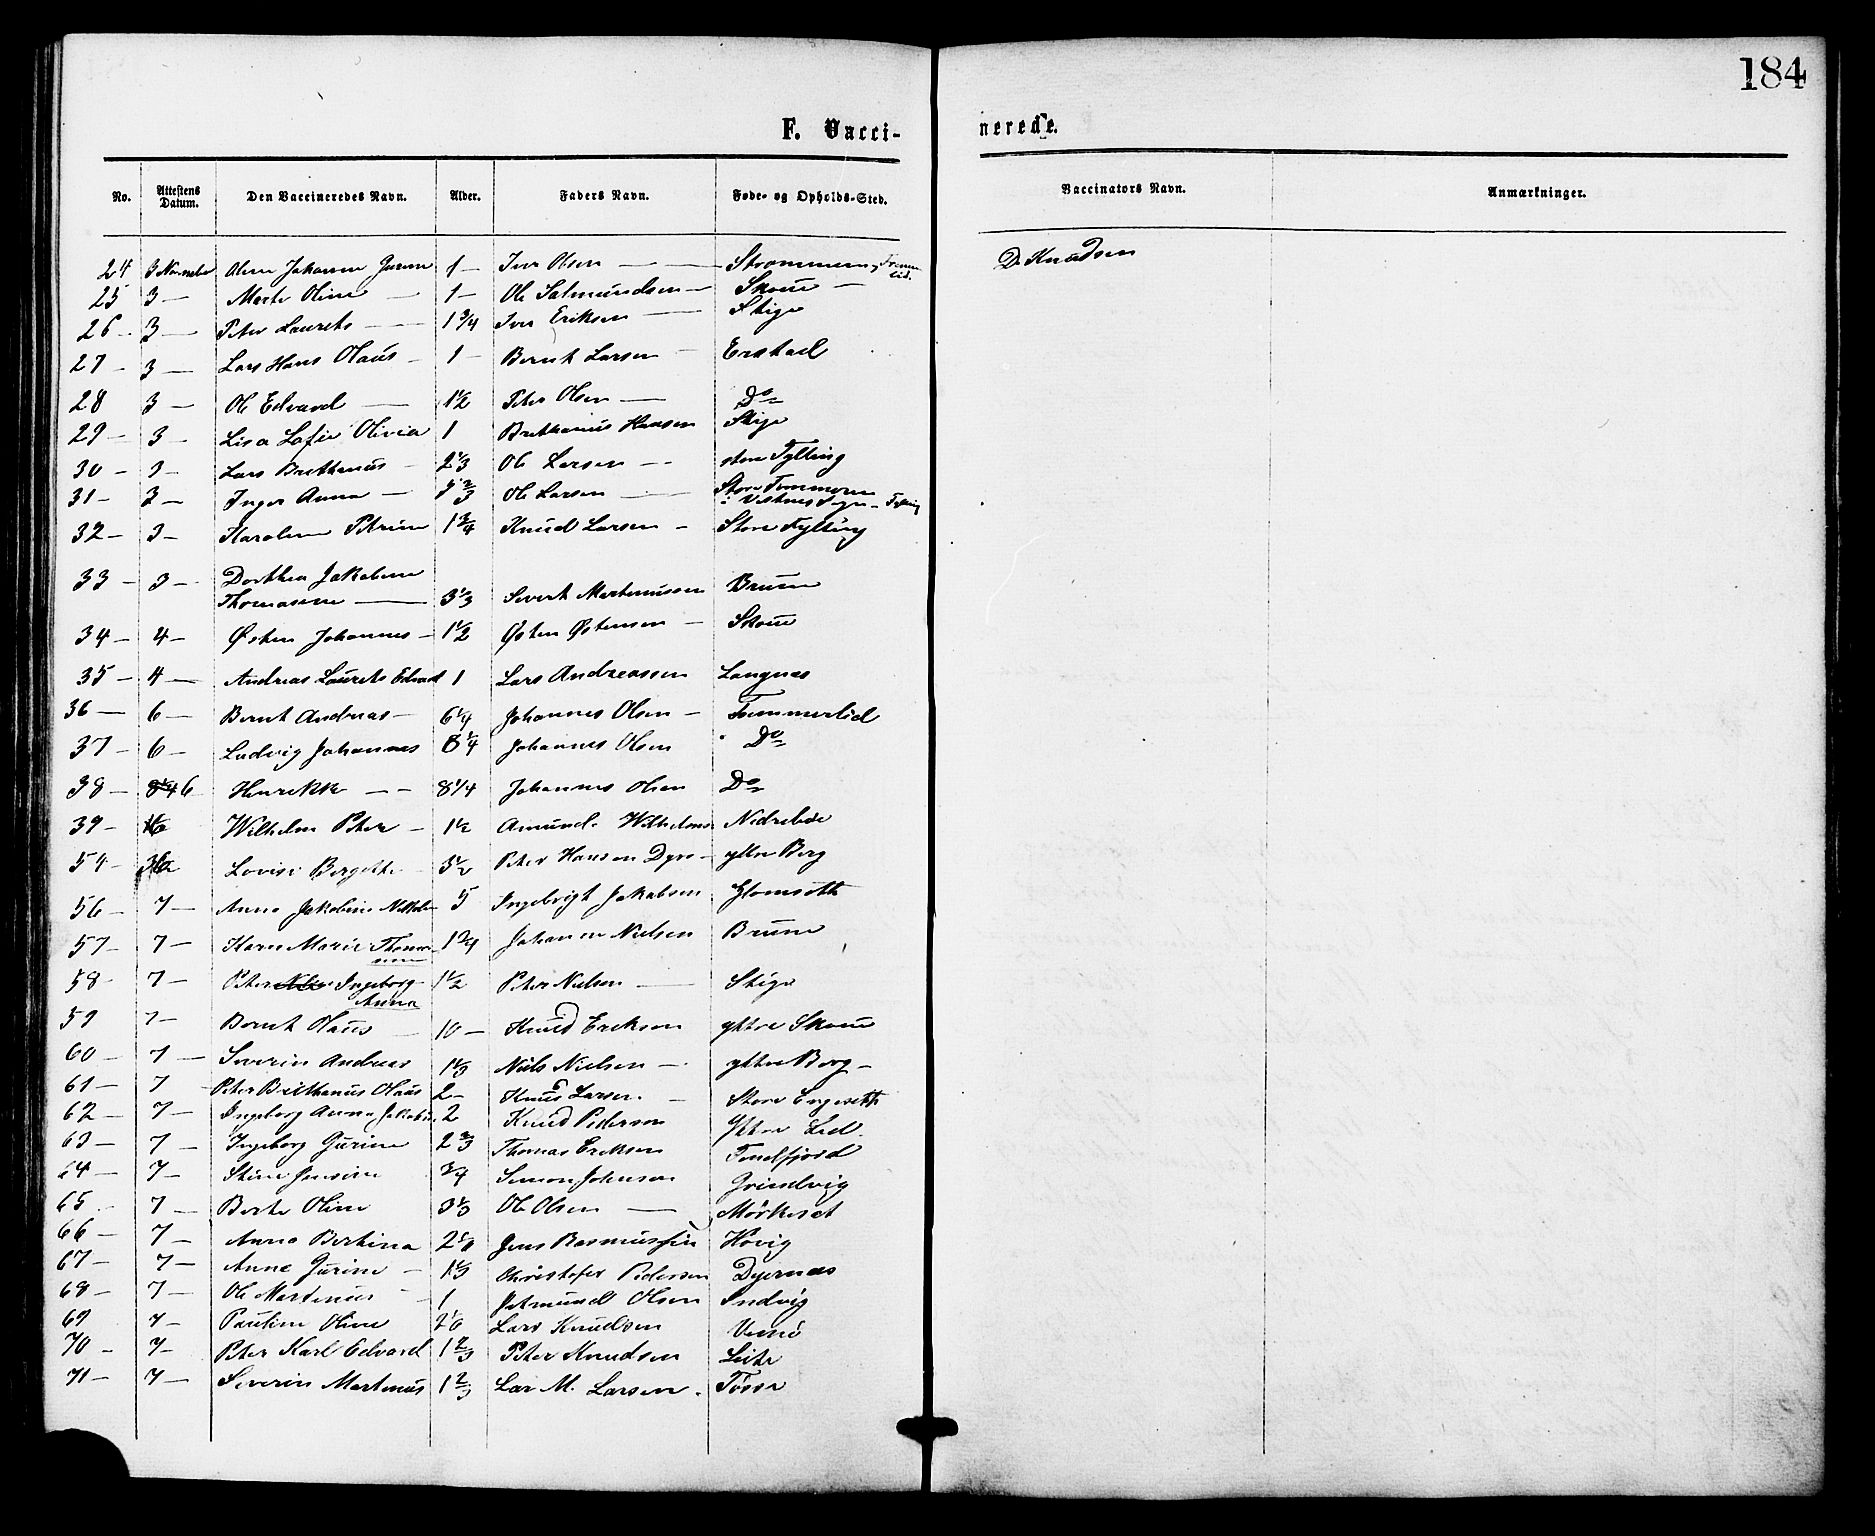 184
F. Vacci- nerede.
No. Attestens Datum. Den Vaccineredes Navn. Alder. Faders Navn. Føde- og Opholds-Sted. Vaccinators Navn. Anmærkninger.
24 3 Johanne Gurine 1 — Iver Olsen — Strømmen D. Knudsen
25 3 — Marte Oline — 1 — Ole — Skoue —
26 - 3 — Peter Laurits — 1 3/4 Iver Eriksen — Stige
27 - 3 — Lars Hans Olaus - 1 — Bernt Larsen — Erstad
28 3 — Ole Edvard — 1 1/2 Peter Olsen — Do
29 - 3 — Lisa Olivia 1 Brithanius Hansen Stige
30 - 3 - Lars Brithanius - 2 1/3 Ole Larsen — store Fylling
31 - 3 — Inger Anna — Ole Larsen — Store
32 - 3 - Karoline Petrine 1 3/4 Knud Larsen - Store Fylling
33 - 3 - Dorthea Jakobine
Thomasine — 3 1/3 Sivert Martinussen Bruun
34 - 4 - Østen Johannes - 1 1/2 Østen Østensen — Skoue
35 - 4 — Andreas Laurits Edvard 1 Lars Andreassen Langnæs
36 — 6 — Bernt Andreas — 6 1/4 Johannes Olsen - Tømmerlid
37 - 6 — Ludvig Johannes 1/4 Johannes Olsen Do
38 - 6 Henrikke — 8 1/4 Johannes Olsen Do
39 - Wilhelm Peter - 1 1/2 Amund Nidrebøe
54 - Lovise Bergitte 3 1/2 Peter Hansen - ytre Berg
56 - 7 — Anna Jakobine 5 Ingebrigt Jakobsen Glomseth
57 - 7 — Karn Marie Thoma-
sine 1 3/4 Johannes Nielsen Bruun
58 - 7 - Peter Ingeborg
Anna 1 1/2 Peter Nielsen — Stige
59 7 — Bernt Olaus 10 — Knud Eriksen yttre Skoue
60 - 7 — Severin Andreas 1 1/3 Niels Nielsen — yttre Berg -
61 - 7 Peter Brithanius Olaus 2 - Knud Larsen. — Store Engeseth
62 - 7 — Ingeborg Anna 2 Knud Pedersen Yttre Lid.
63 - 7 - Ingeborg Gurine 2 2/3 Thomas Eriksen Tennfjord
64 — 7 - Stine Jensine 3/4 Simon Johnsen Grindvig
65 7 — Berte Oline 3 1/3 Ole Olsen — Mørkeset
66 - 7 - Anna Bertina Jens Rasmussen Hovig
67 - 7 — Anne Gurine — 1 1/3 Christofer Pedersen
68 - 7 — Ole Martinus 1 Olsen Indvig
69 7 - Pauline Oline 2 1/6 Lars Knudsen
70 - 7 - Peter Karl Edvard 1 2/3 Peter Knudsen Leite
71 - 7 — Severin Martinus 1 2/3 Lar M. Larsen. Tøsse